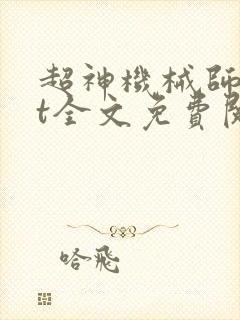 超神機械師
t全文免費閱
哈飛